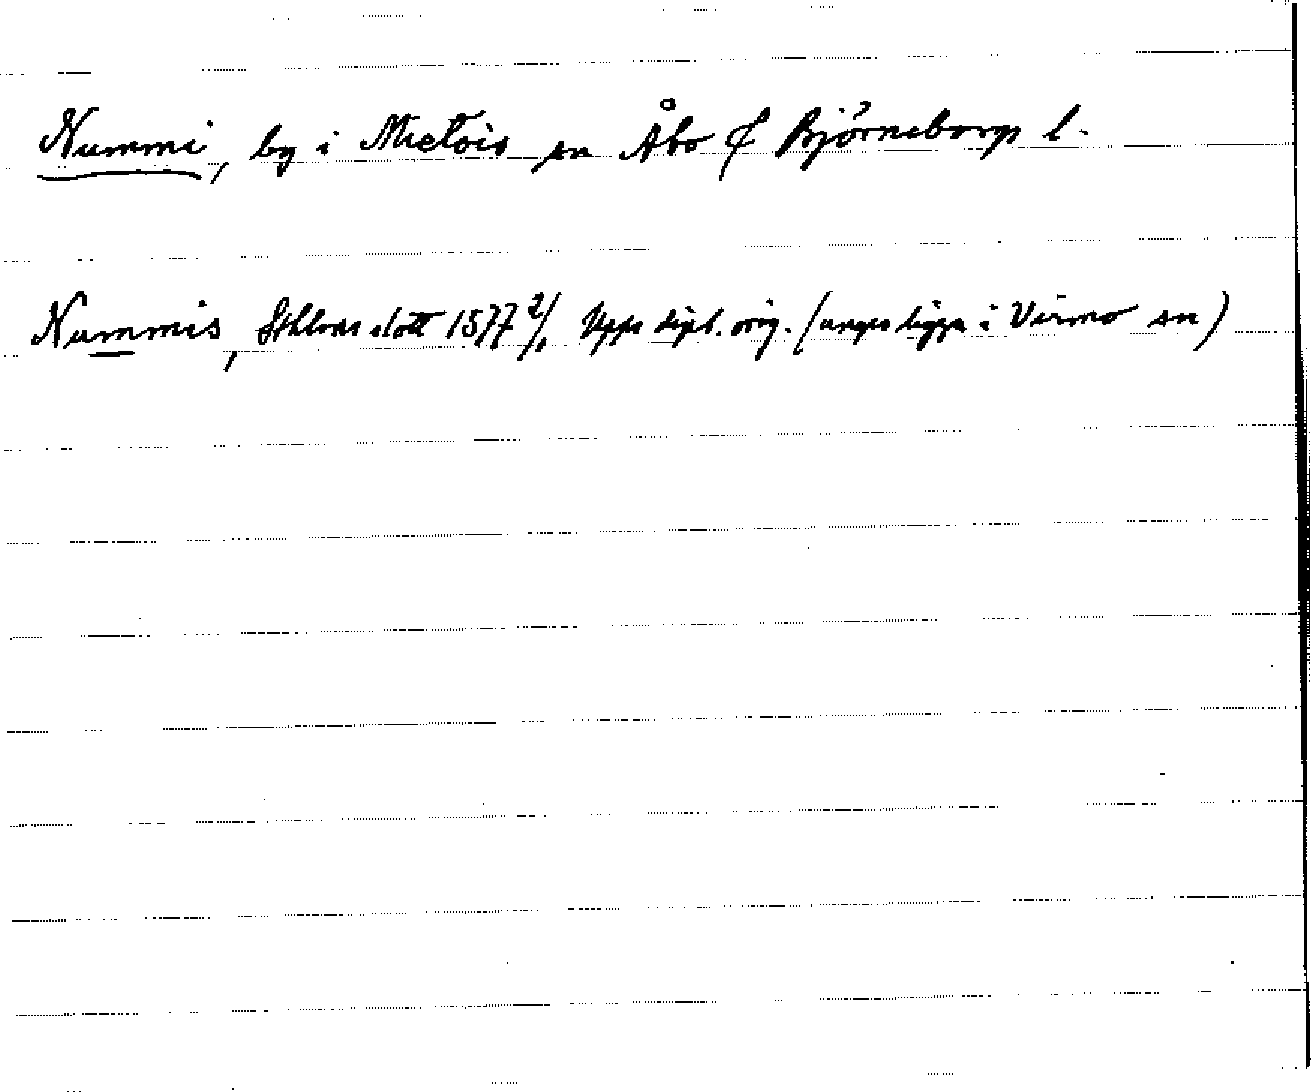 Nummi, by i Mietois sn Åbo & Björneborgs l.
Nummis, Sthlms slott 1577 2/1 Upps dipl. orig. (anges ligga i Virmo sn)